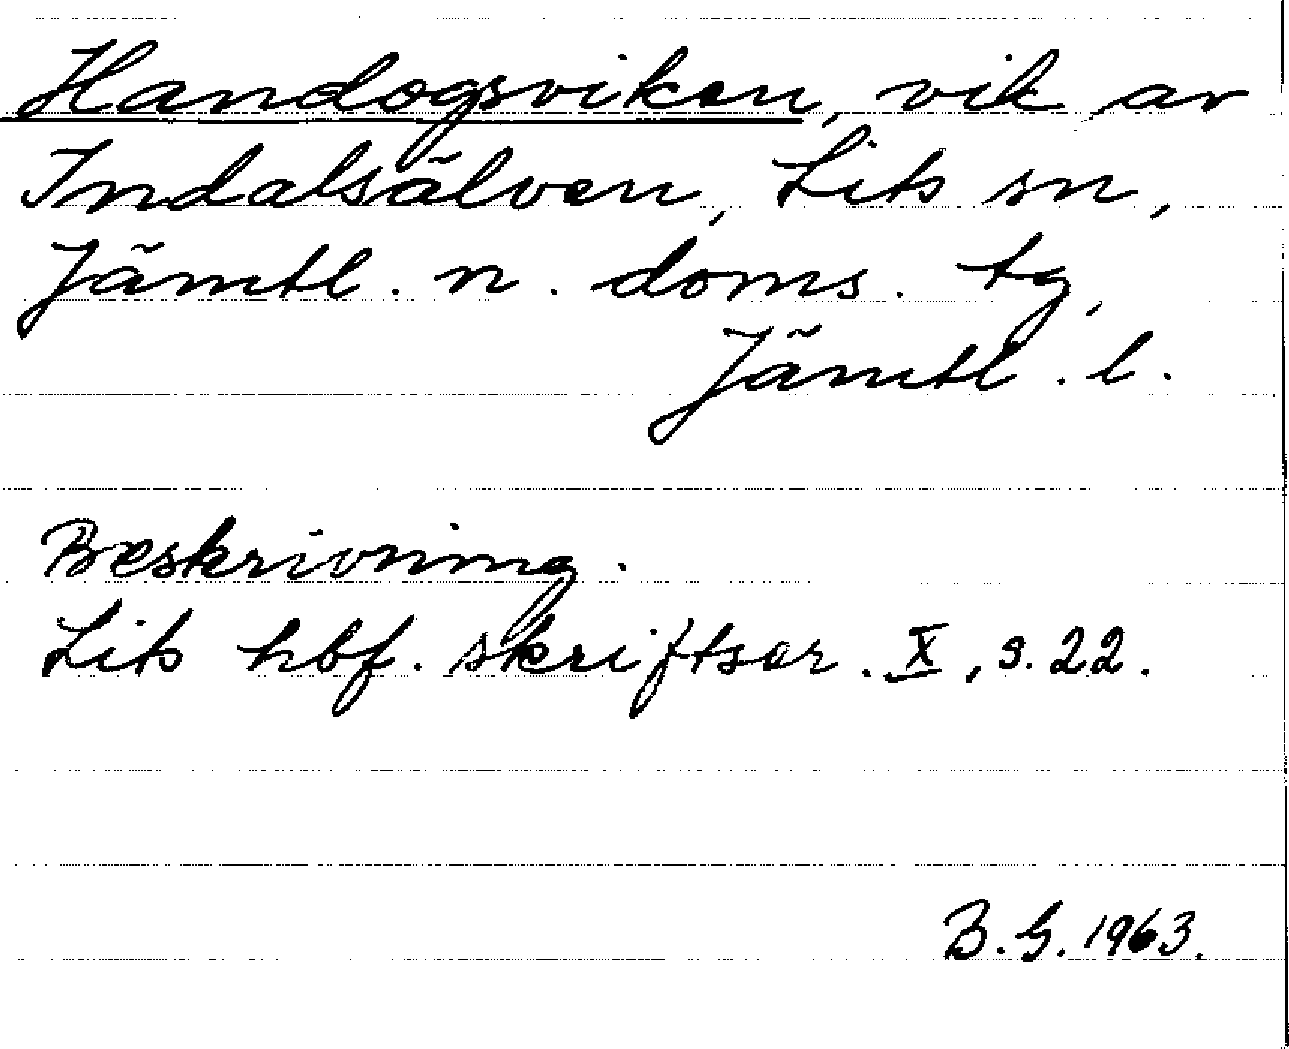 Handogsviken, vik av
Indalsälven, Lits sn,
Jämtl. n. doms. tg,
Jämtl. l.
Beskrivning.
Lits hbf. skriftser. X, s. 22.
B. G. 1963.